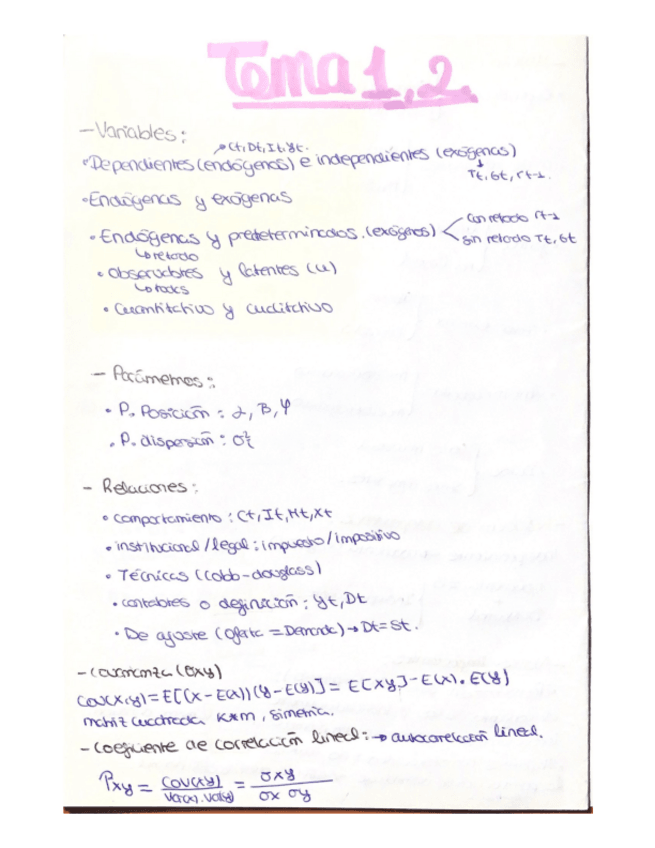 Tema 1, 2.
- Variables:
Ct, Dt, It, yt.
• Dependientes (endógenas) e independientes (exógenas)
Tt, Gt, rt-1.
• Endógenas y exógenas
• Endógenas y predeterminadas. (exógenas) con retardo rt-1
sin retardo Tt, Gt
↳ retardo
• observables y latentes (u)
↳ todas
• Cuantitativo y cualitativo
- Parámetros:
• P. Posición: α, B, φ
• P. dispersión:
- Relaciones:
• comportamiento: Ct, It, Mt, Xt
• institucional / legal: impuesto / impositivo
• Técnicas (cobb-douglass)
• contables o definición: yt, Dt
• De ajuste (oferta = Demanda) → Dt = St.
- covarianza (σxy)
cov(x,y) = E[(x - E(x)) (y - E(y)] = E[xy] - E(x). E(y)
matriz cuadrada kxm, simetría.
- coeficiente de correlación lineal: → autocorrelación lineal.
Pxy = cov(xy) / var(x). var(y) = σxy / σx σy